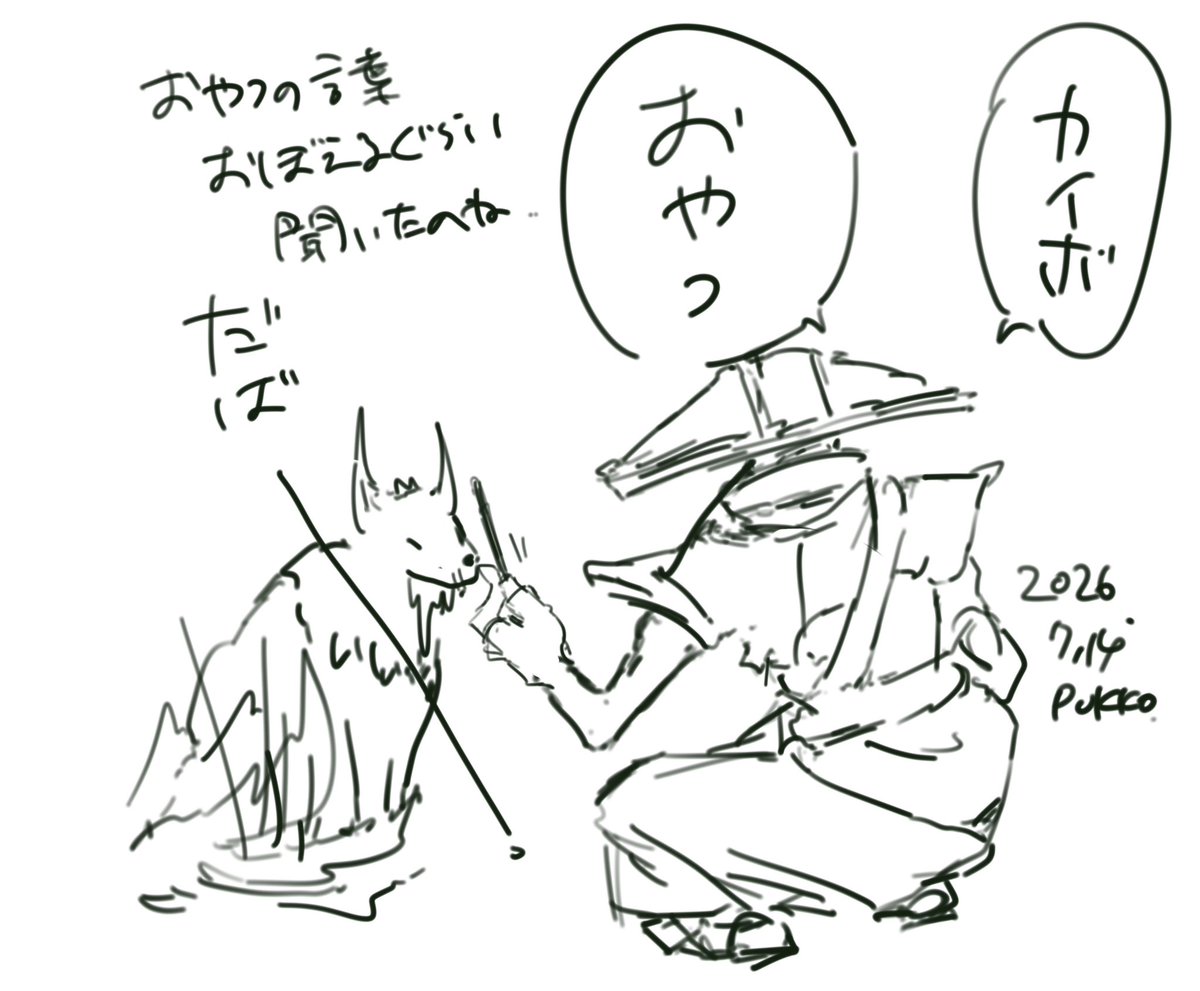 カイボ
おやつ
おやつの言葉
おぼえるぐらい
聞いたのね…
だば
2026
7.14
PUKKO